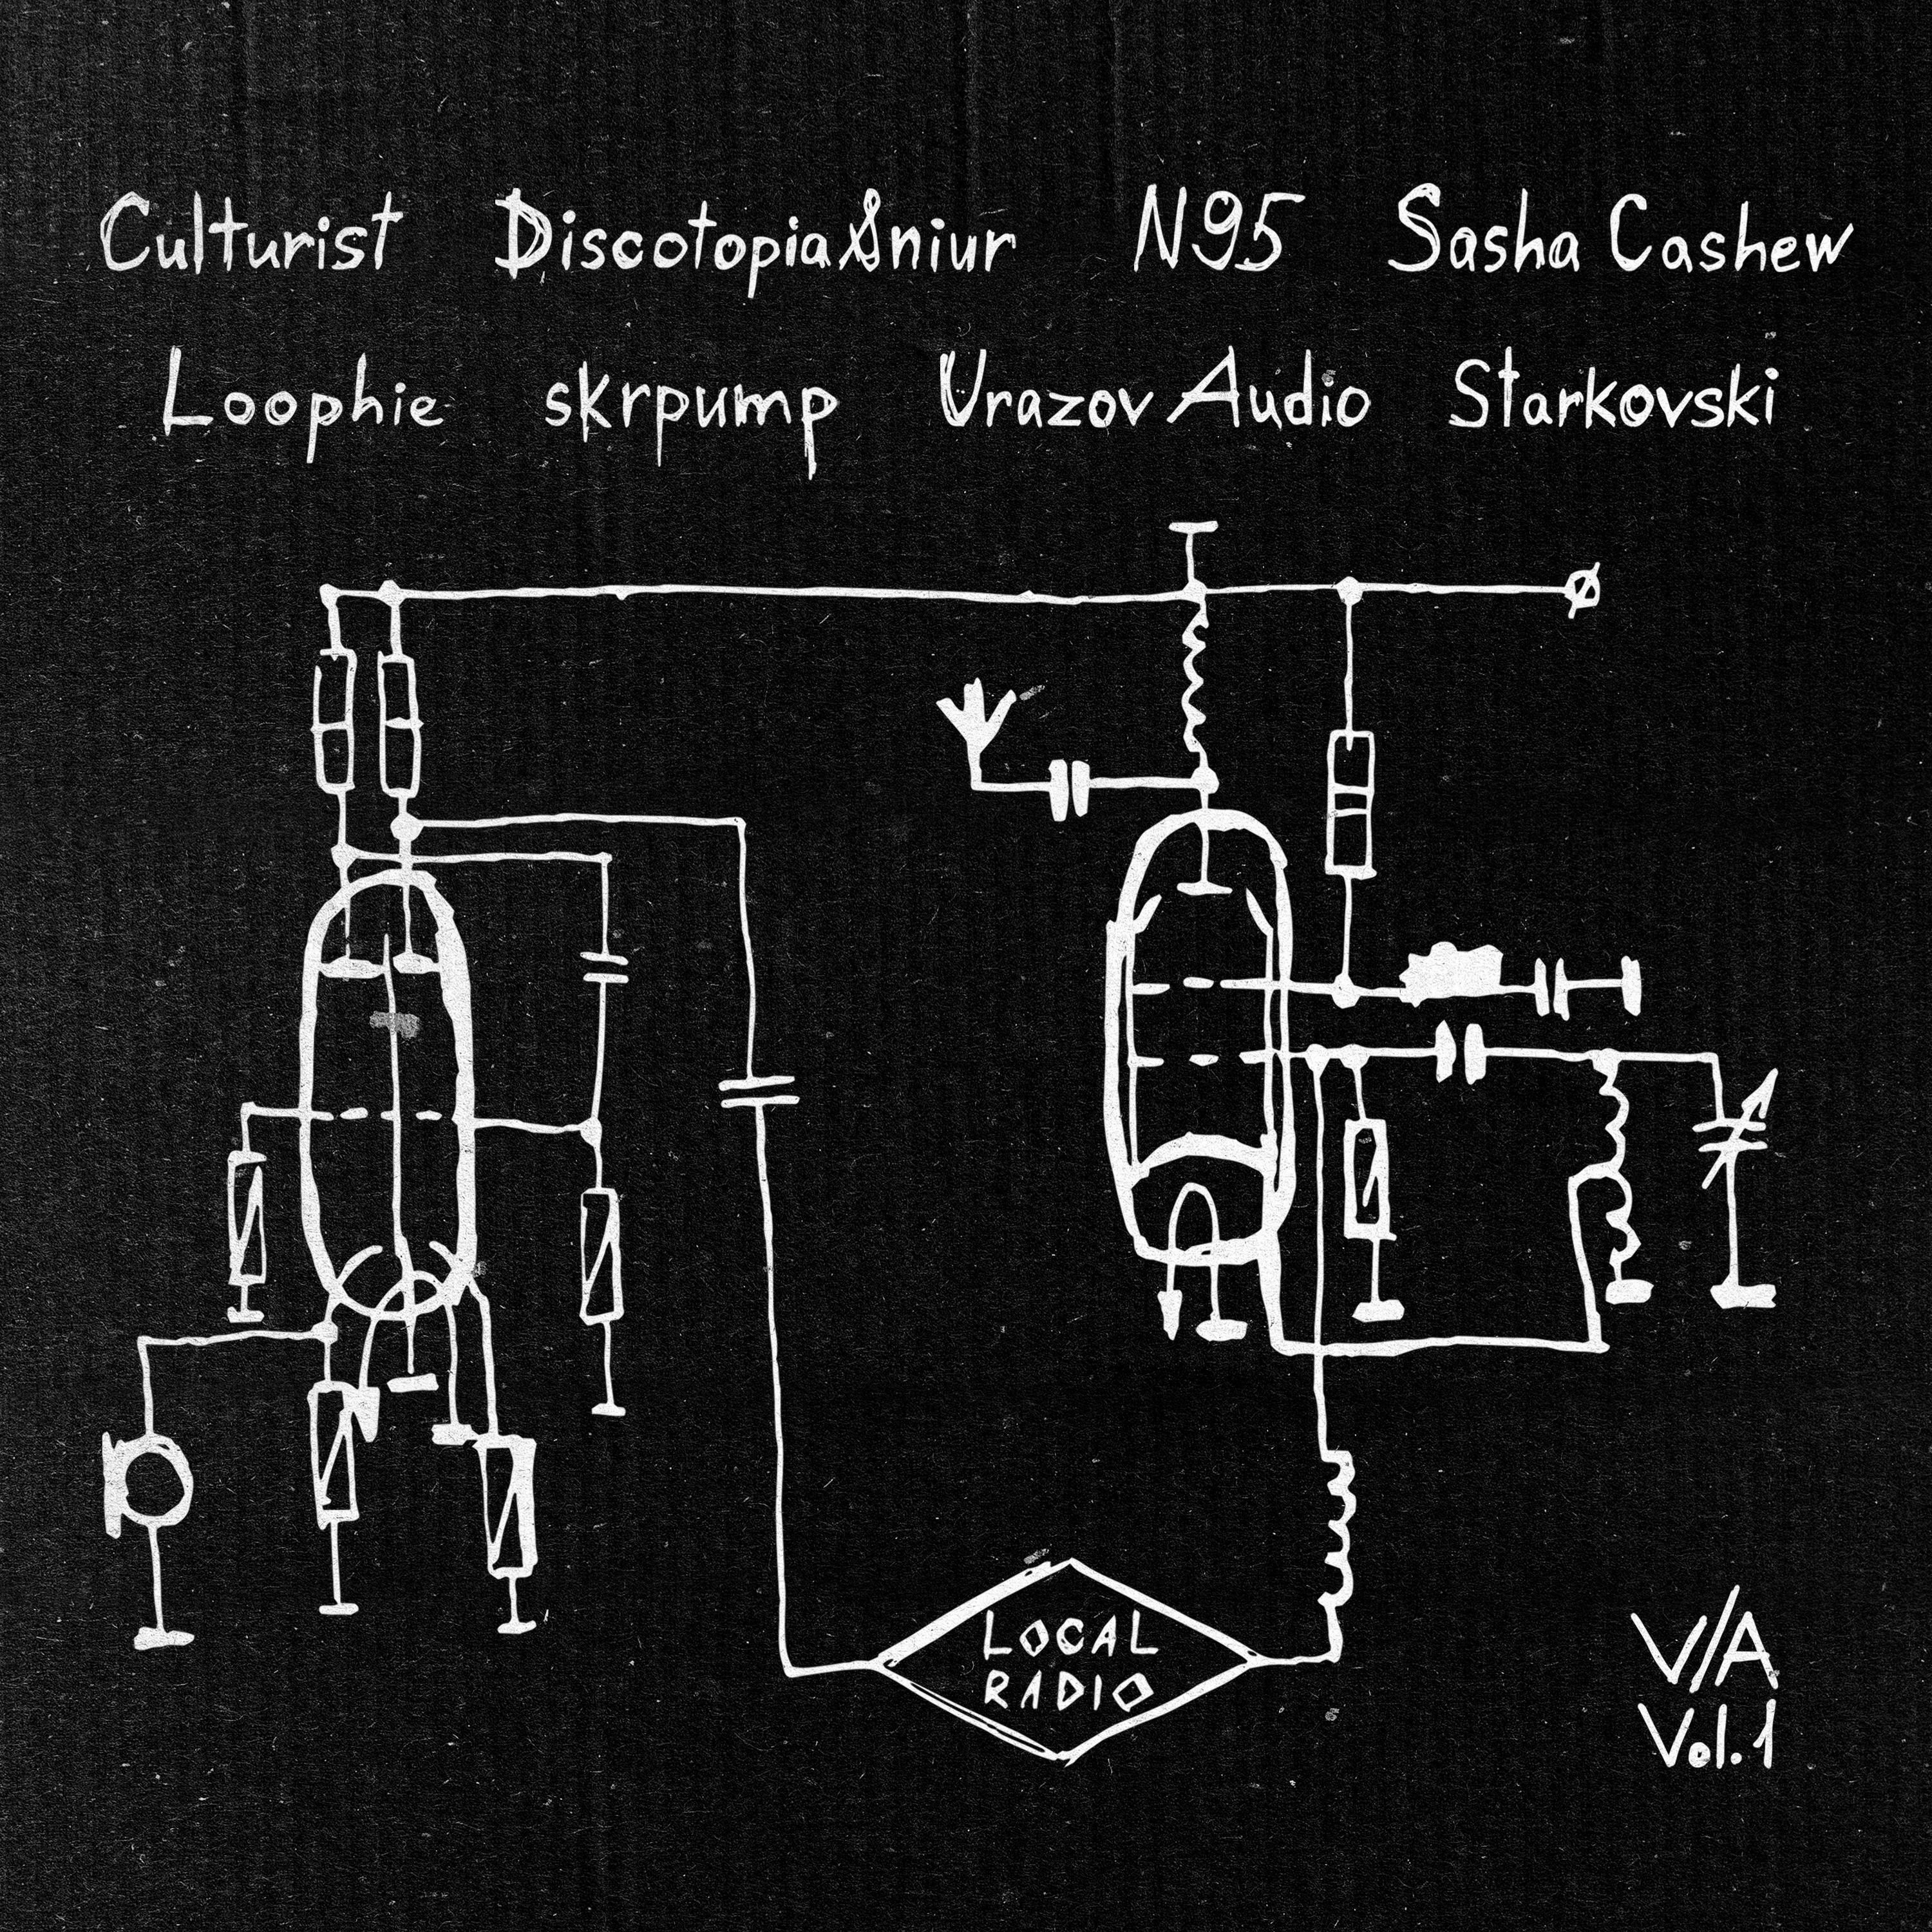 Culturist Discotopia&niur N95 Sasha Cashew
Loophie skrpump Urazov Audio Starkovski
LOCAL
RADIO
V/A
Vol.1